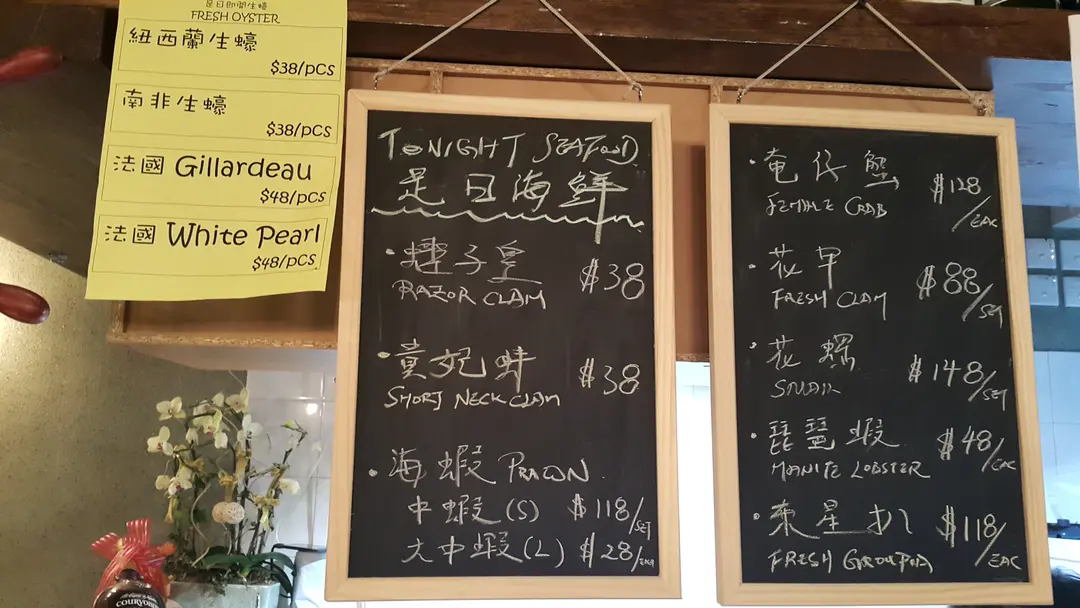 是日即開生蠔
FRESH OYSTER
紐西蘭生蠔
$38/pcs
南非生蠔
$38/pcs
法國 Gillardeau
$48/pcs
法國 White Pearl
$48/pcs
TONIGHT SEAFOOD
是日海鮮
蟶子皇 $38
RAZOR CLAM
貴妃蚌 $38
SHORT NECK CLAM
海蝦 PRAWN
中蝦(S) $118/SET
大中蝦(L) $28/EACH
奄仔蟹 $128/EAC
FEMALE CRAB
花甲 $88/SET
FRESH CLAM
花螺 $148/SET
SNAIL
琵琶蝦 $48/EAC
MANITE LOBSTER
東星扒 $118/EAC
FRESH
COURVOISI